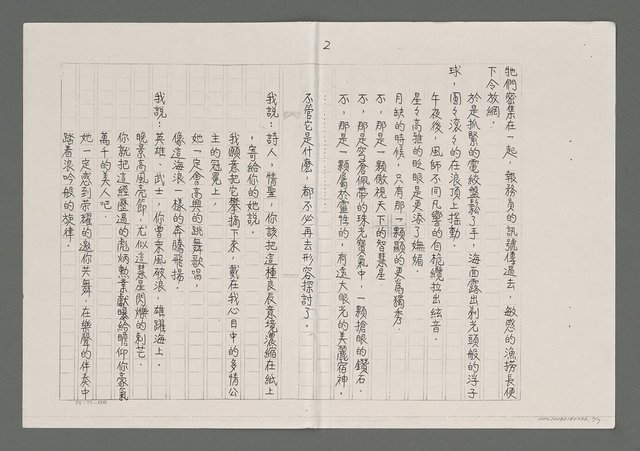 2
牠們密集在一起，報務員的訊號傳過去，敏感的漁撈長便
下令放網。
於是抓緊的電絞盤鬆了手，海面露出剃光頭般的浮子
球，圓々滾々的在浪頂上搖動。
午夜後，風師不同凡響的自桅纜拉出絃音。
星々高雅的眨眼是更添了嫵媚。
月缺的時候，只有那一顆顯的更為獨秀。
不，那是一顆傲視天下的智慧星
不，那是蒼穹佩帶的珠光寶氣中，一顆搶眼的鑽石。
不，那是一顆屬於靈性的，有遠大眼光的美麗宿神。
⋯⋯
不管它是什麼，都不必再去形容探討了。
我說：詩人，情聖，你該把這種良辰意境濃縮在紙上
，寄給你的她說。
我願意把它摘下來，戴在我心目中的多情公
主的冠冕上。
她一定會高興的跳舞歌唱，
像這海浪一樣的奔騰飛揚。
我說：英雄，武士，你曾乘風破浪，雄躍海上。
晚景高風亮節，尤似這慧星閃爍的刺芒。
你就把這經歷過的彪炳勳業獻曝給瞻仰你豪氣
萬千的美人吧。
她一定感到榮耀的邀你共舞。在樂聲的伴奏中
踏着浪吟般的旋律。